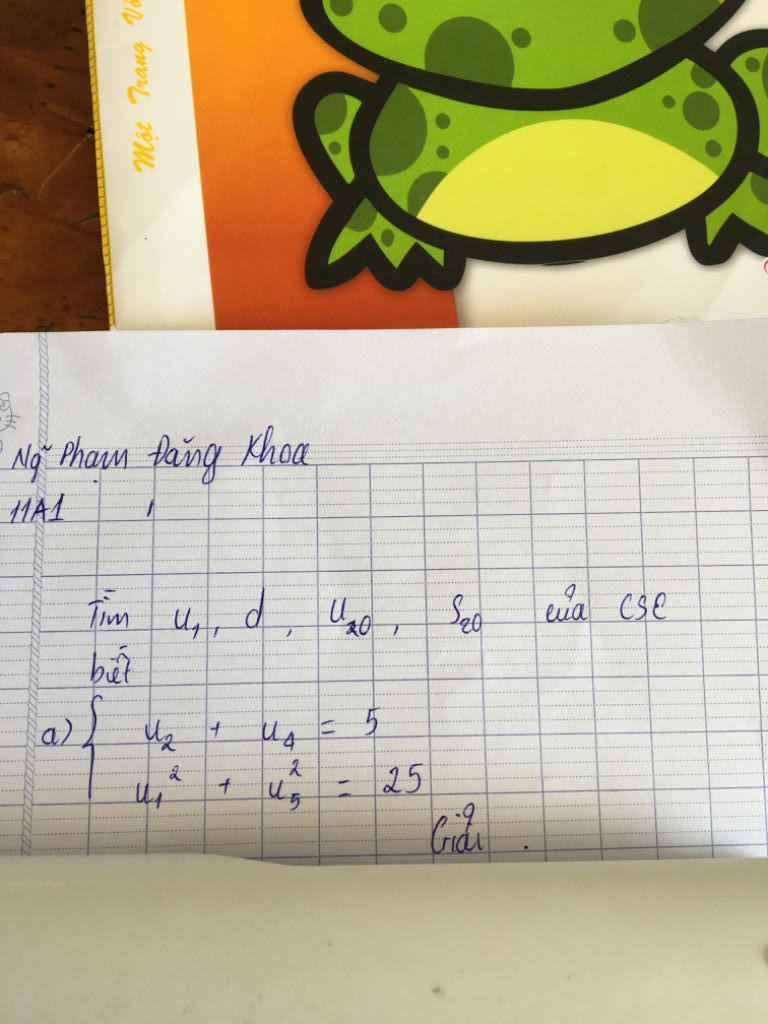 Một Trang Vở
Ng~ Phạm Đăng Khoa
11A1
Tìm u₁, d, u₂₀, S₂₀ của CSC
biết
a) { u₂ + u₄ = 5
u₁² + u₅² = 25
Giải.